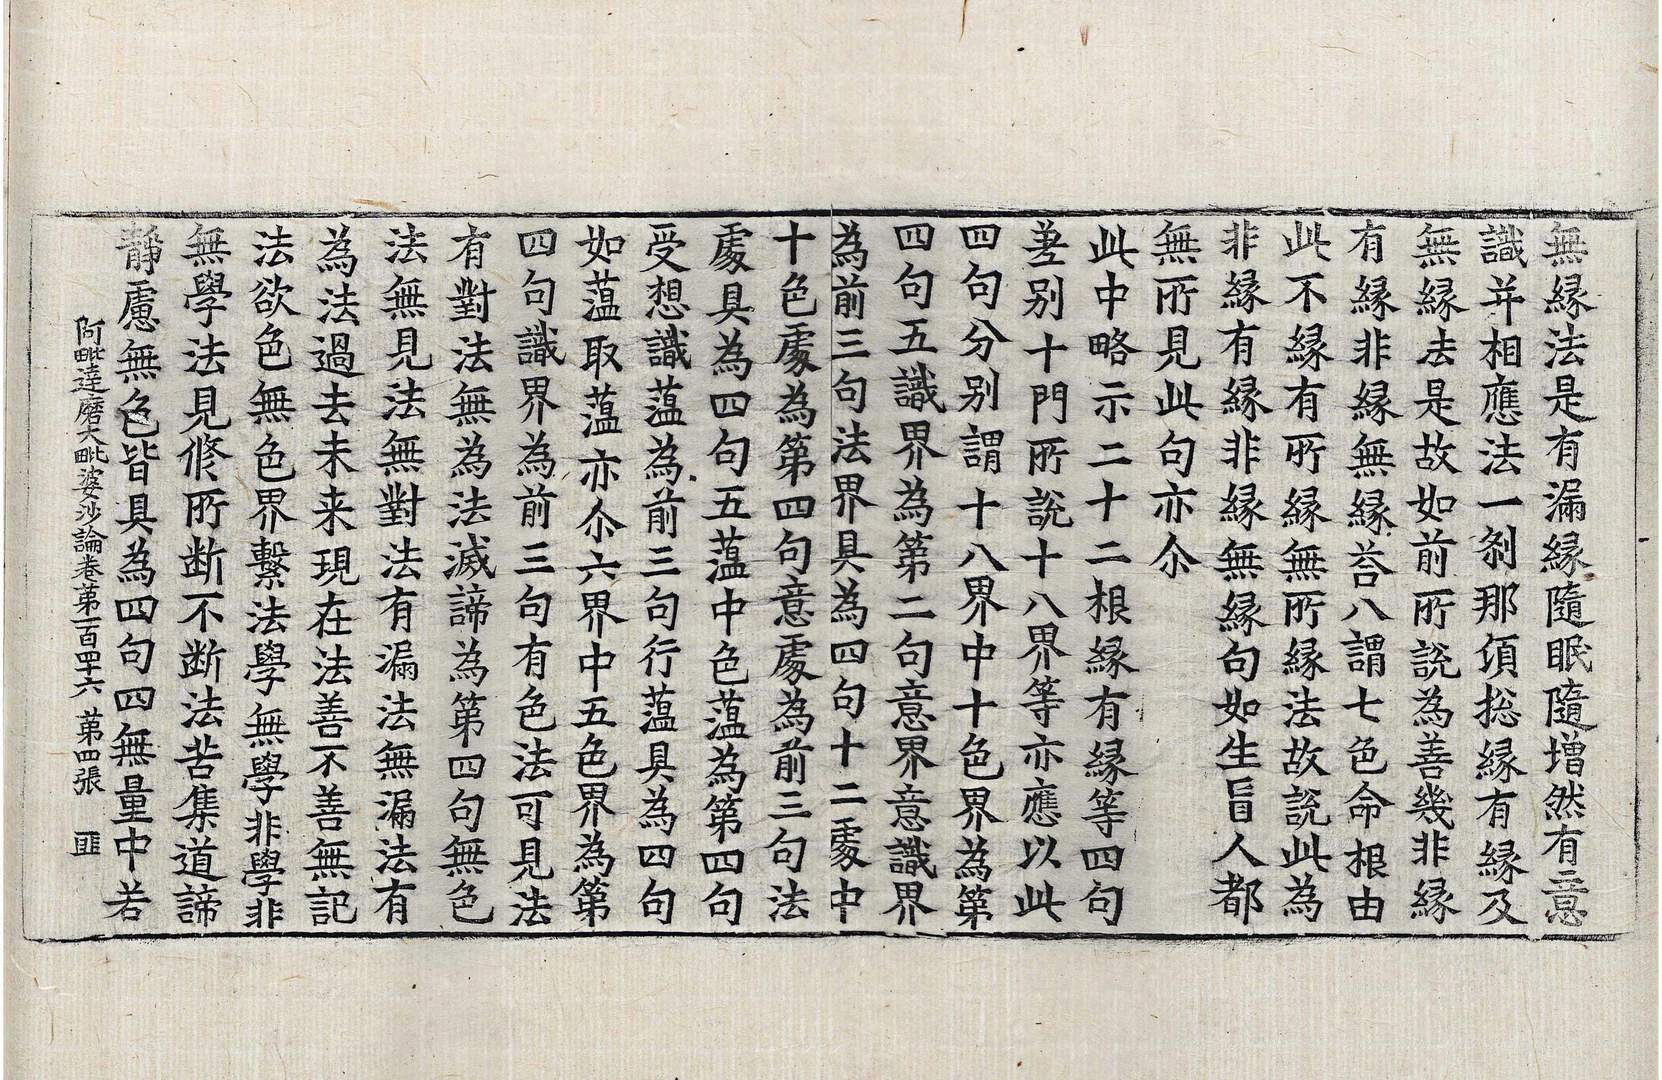 無縁法是有漏縁隨眠隨增然有意
識并相應法一刹那頃捴縁有縁及
無縁法是故如前所說為善幾非縁
有縁非縁無縁荅八謂七色命根由
此不縁有所縁無所縁法故說此為
非縁有縁非縁無縁句如生盲人都
無所見此句亦尒
此中略示二十二根縁有縁等四句
差别十門所說十八界等亦應以此
四句分别謂十八界中十色界為第
四句五識界為第二句意界意識界
為前三句法界具為四句十二處中
十色處為第四句意處為前三句法
處具為四句五藴中色藴為第四句
受想識藴為前三句行藴具為四句
如藴取藴亦尒六界中五色界為第
四句識界為前三句有色法可見法
有對法無為法滅諦為第四句無色
法無見法無對法有漏法無漏法有
為法過去未来現在法善不善無記
法欲色無色界繫法學無學非學非
無學法見修所断不断法苦集道諦
靜慮無色皆具為四句四無量中若
阿毗達磨大毗婆沙論卷第一百四十六 第四張 匪